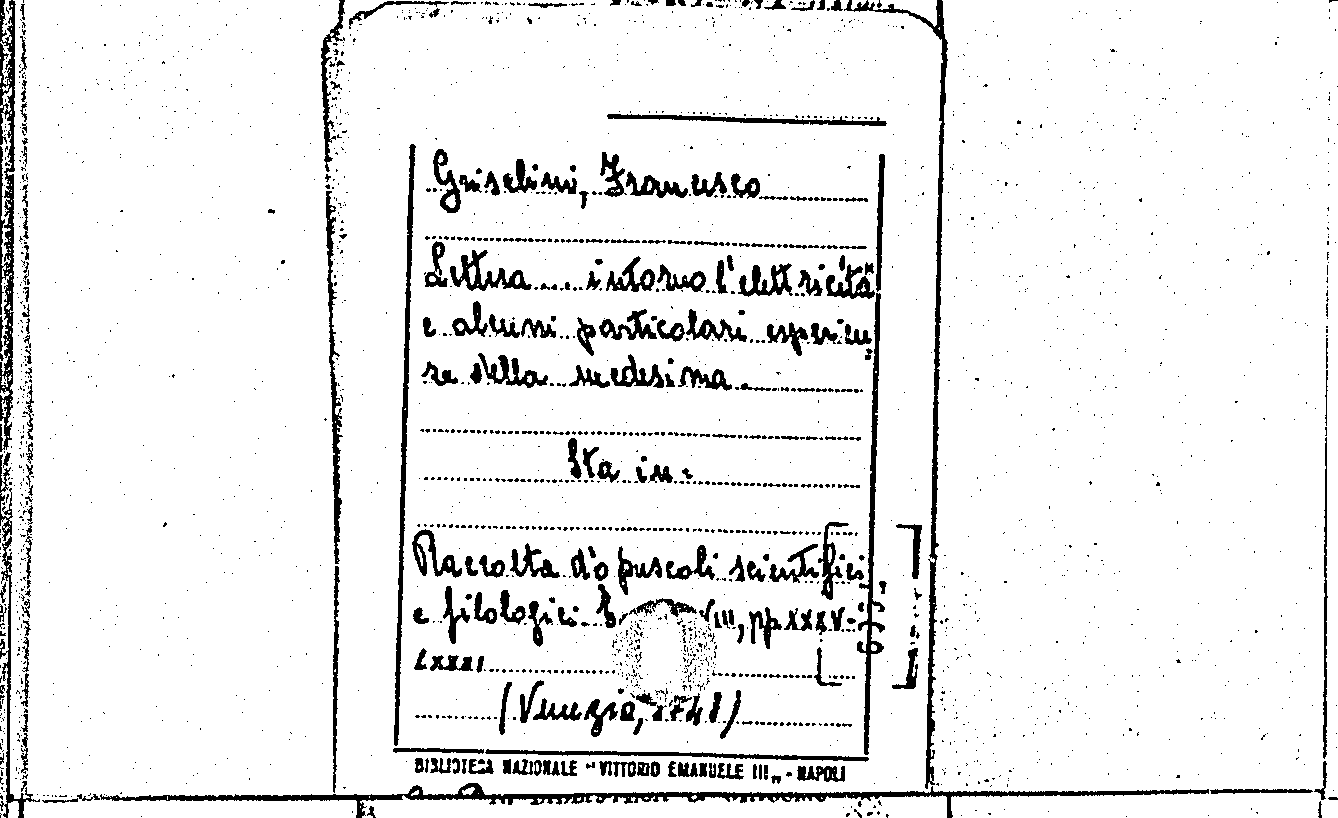 Griselini, Francesco
Lettera ... intorno l'elettricità
e alcuni particolari esperien
ze della medesima.
Sta in:
Raccolta d'opuscoli scientifici
e filologici. VIII, pp. XXXV-
LXXXI
(Venezia, 1748)
BIBLIOTECA NAZIONALE "VITTORIO EMANUELE III„ - NAPOLI